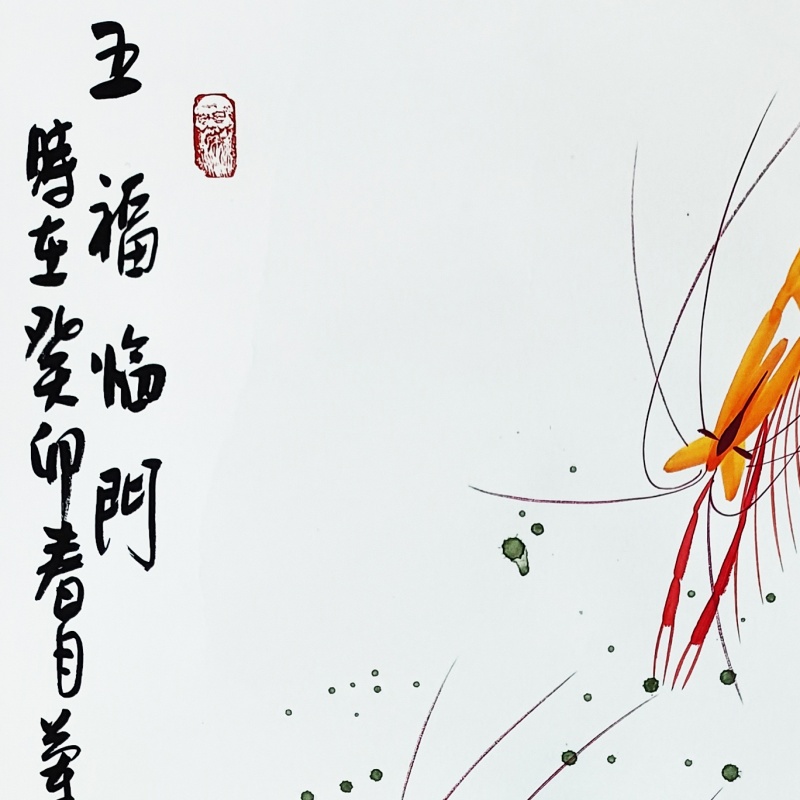 五福临門
時在癸卯春月